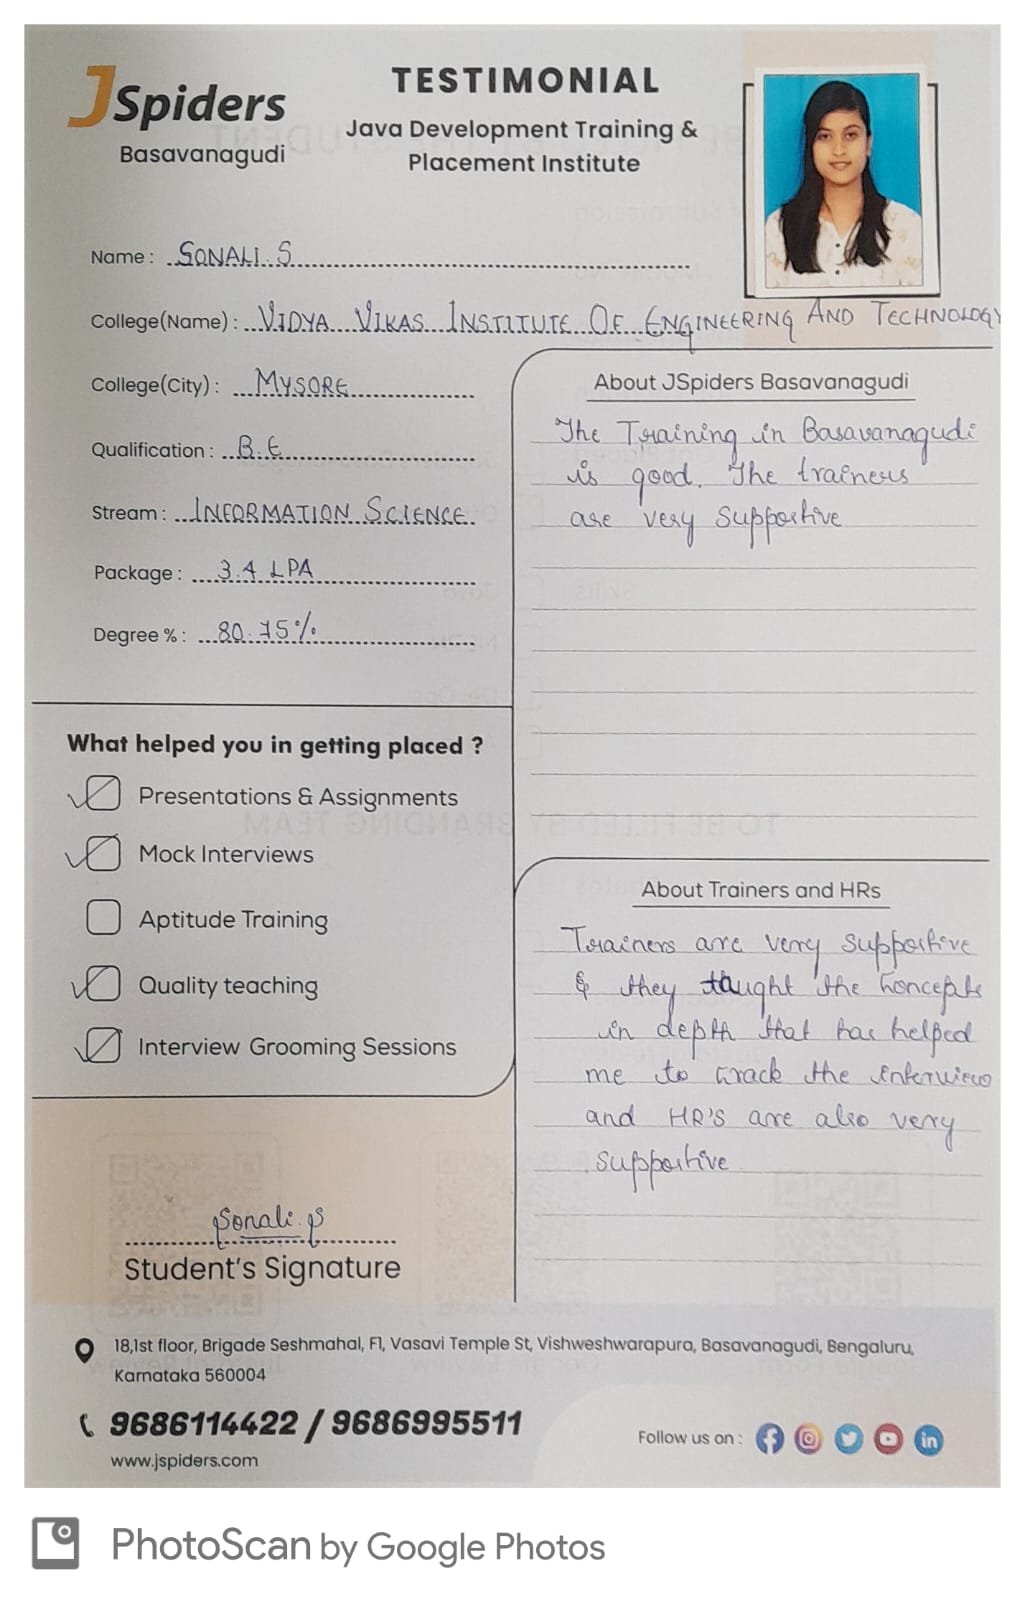 JSpiders
Basavanagudi
TESTIMONIAL
Java Development Training &
Placement Institute
Name : SONALI. S
College(Name) : VIDYA VIKAS INSTITUTE OF ENGINEERING AND TECHNOLOGY
College(City) : MYSORE
Qualification : B.E
Stream : INFORMATION SCIENCE.
Package : 3.4 LPA
Degree % : 80.75%
What helped you in getting placed ?
Presentations & Assignments
Mock Interviews
Aptitude Training
Quality teaching
Interview Grooming Sessions
Sonali.S
Student's Signature
About JSpiders Basavanagudi
The Training in Basavanagudi
is good. The trainers
are very supportive
About Trainers and HRs
Trainers are very supportive
& they taught the concepts
in depth that has helped
me to crack the interview
and HR'S are also very
supportive
18,1st floor, Brigade Seshmahal, F1, Vasavi Temple St, Vishweshwarapura, Basavanagudi, Bengaluru,
Karnataka 560004
9686114422 / 9686995511
www.jspiders.com
Follow us on :
PhotoScan by Google Photos